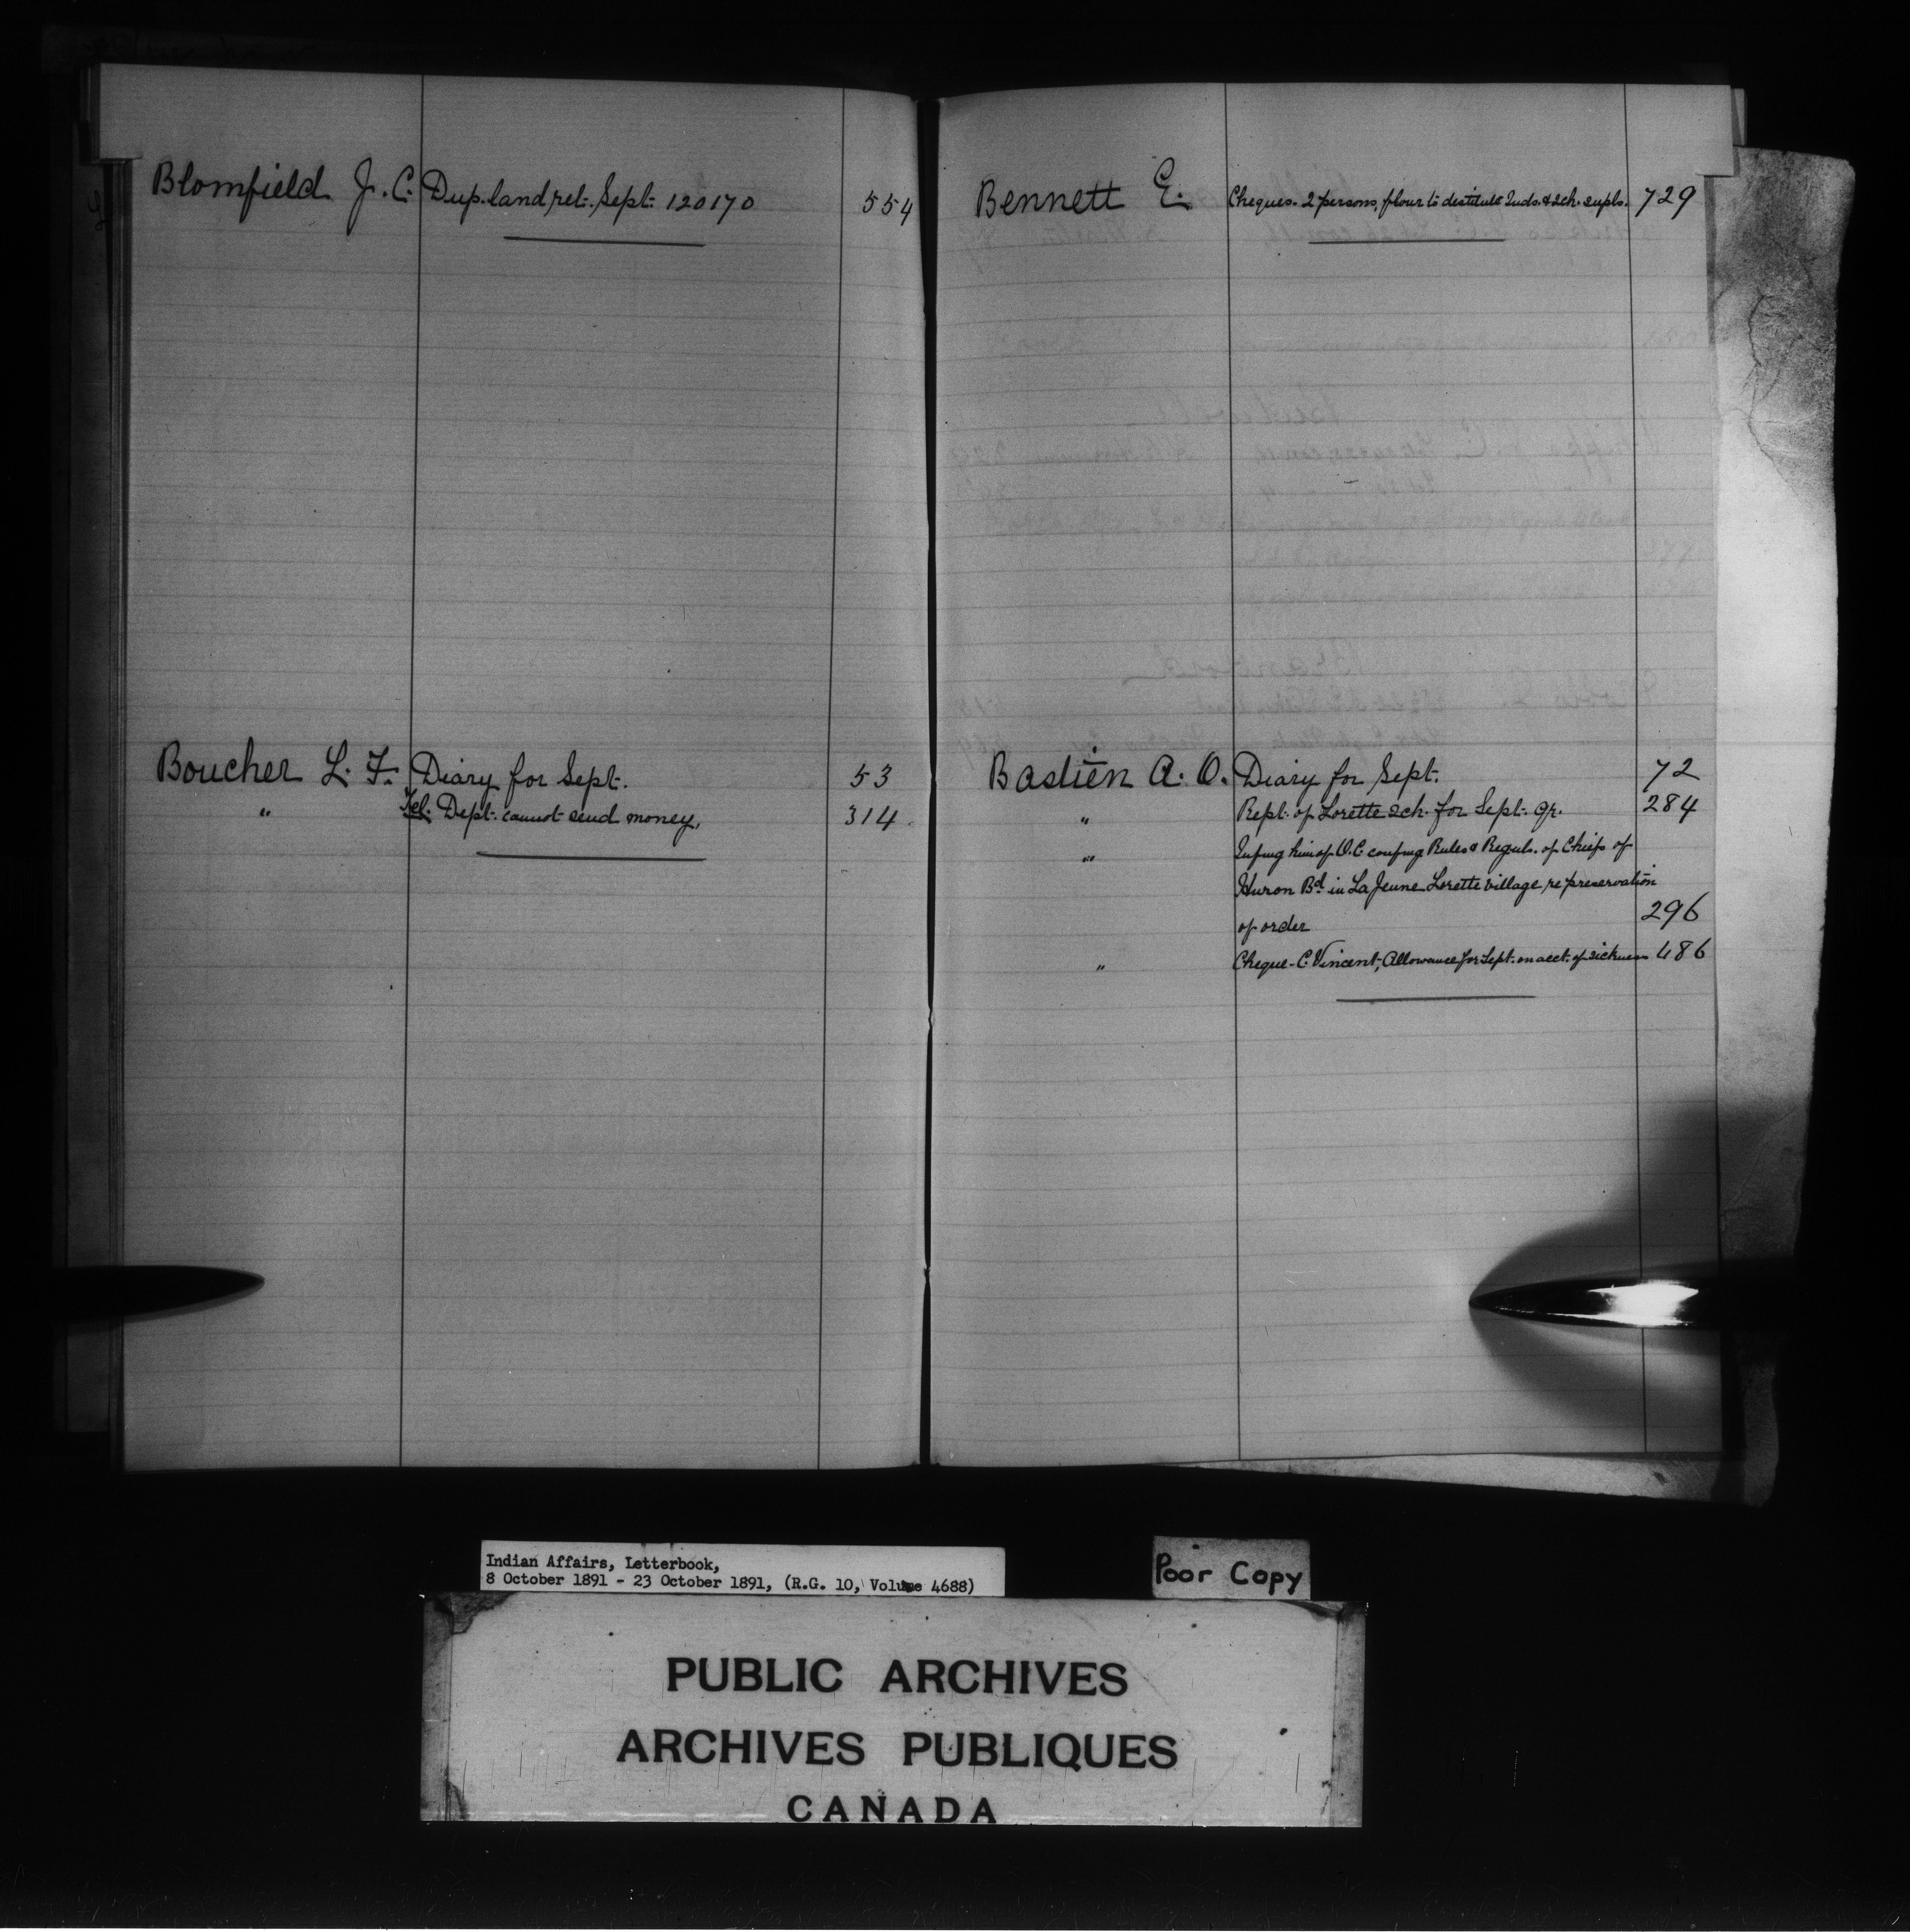 Blomfield J. C. Dup. land ret. Sept. 120170 554
Boucher L. F. Diary for Sept. 53
" Tel. Dept. cannot send money. 314
Bennett E. Cheques. 2 persons, flour to destitute Inds. & sch. supls. 729
Bastien A. O. Diary for Sept. 72
" Rept. of Lorette sch. for Sept. qr. 284
" Infmg him of O.C. confmg Rules & Reguls. of Chiefs of
Huron Bd. in La Jeune Lorette village re preservation
of order 296
" Cheque - C. Vincent, Allowance for Sept. on acct. of sickness 486
Indian Affairs, Letterbook,
8 October 1891 - 23 October 1891, (R.G. 10, Volume 4688)
Poor Copy
PUBLIC ARCHIVES
ARCHIVES PUBLIQUES
CANADA